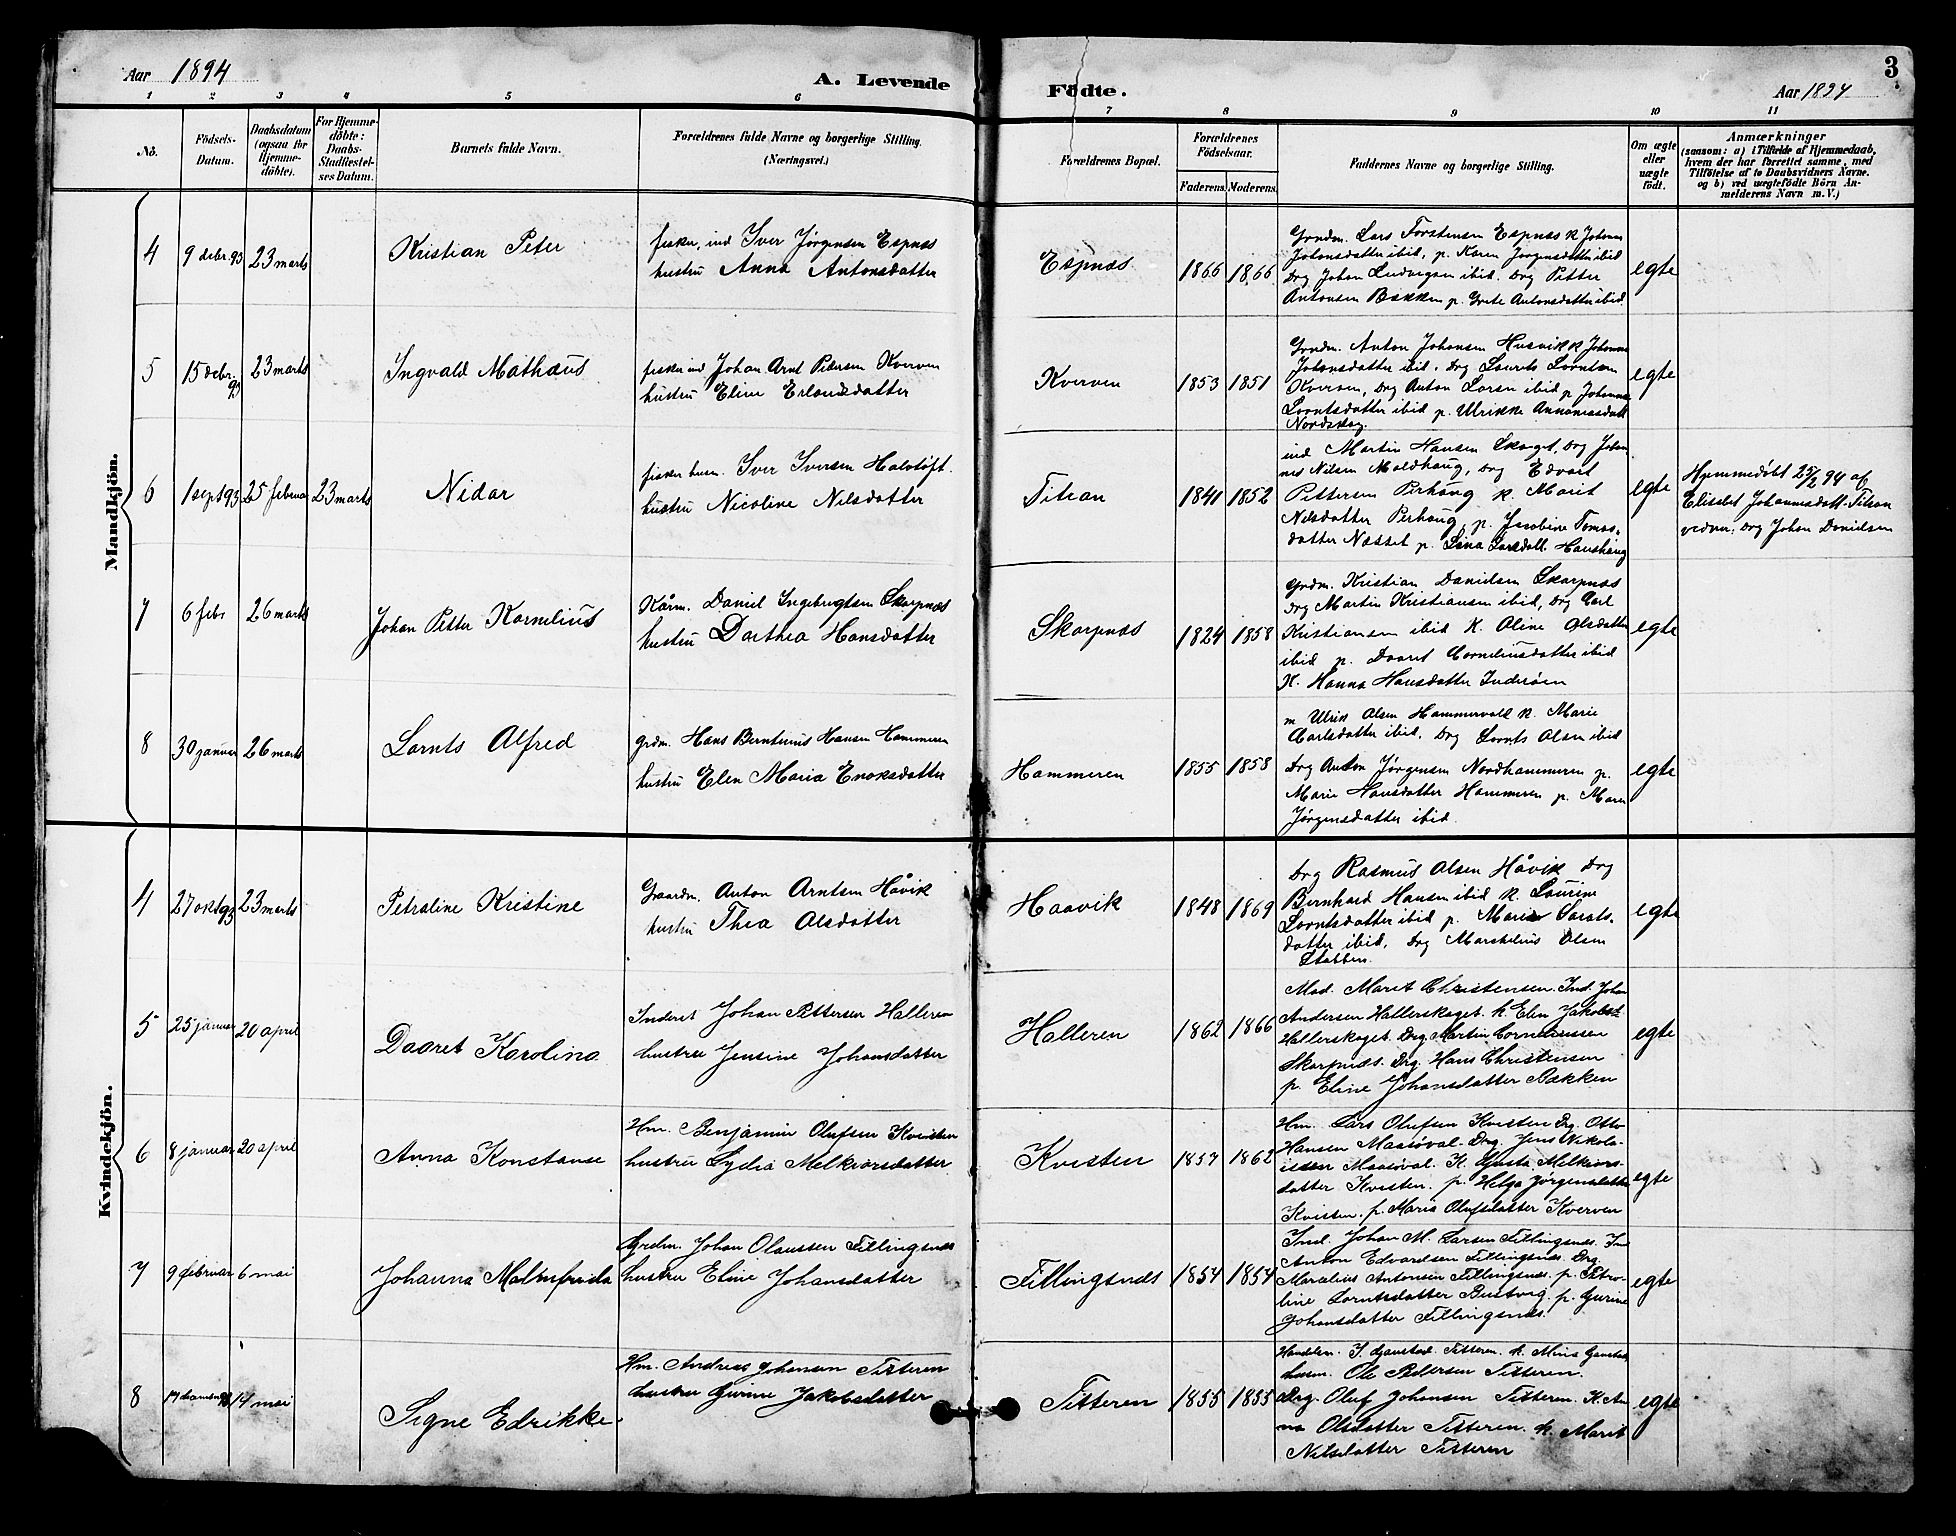 Aar 1894
A. Levende
Födte.
Aar 1894
3
1 2 3 4 5 6 7 8 9 10 11
No.
Födsels-
Datum.
Daabsdatum
(ogsaa for
Hjemme-
döbte).
For Hjemme-
döbte:
Daabs-
Stadfæstel-
ses Datum.
Barnets fulde Navn.
Forældrenes fulde Navne og borgerlige Stilling.
(Næringsvei.)
Forældrenes Bopæl.
Forældrenes
Födselsaar.
Faderens. Moderens.
Faddernes Navne og borgerlige Stilling.
Om ægte
eller
uægte
födt.
Anmærkninger
(saasom: a) i Tilfælde af Hjemmedaab,
hvem der har forrettet samme, med
Tilföielse af to Daabsvidners Navne.
og b) ved uægtefödte Börn An-
melderens Navn m. V.)
Mandkjön.
4 9 debr 93 23 marts
Kristian Peter
fisker, ind Iver Jørgensen Espnæs
hustru Anna Antonsdatter
Espnæs
1866 1866
Grndm. Lars Torstensen Espnæs k Johanna
Johansdatter ibid, p. Karen Jørgensdatter ibid
Drg Johan Ludvigsen ibid. Drg Petter
Antonsen Bakken p. Grete Antonsdatter ibid.
egte
5 15 debr. 93 23 marts
Ingvald Mathæus
fisker ind Johan Arnt Petersen Kverven
hustru Eline Erlandsdatter
Kverven
1853 1851
Grndm. Anton Johansen Husvik k Johanna
Johansdatter ibid. Drg Laurits Lorntsen
Kverven, Drg Anton Larsen ibid p. Johanna
Lorntsdatter ibid p. Ulrikke
Nordskag.
egte
6 1 sept 93 25 februar 23 marts
Nidar
fisker husm. Iver Iversen Halvtøft.
hustru Nicoline Nilsdatter
Titran
1841 1852
ind Martin Hansen Skaget, Drg Johan-
nes Nilsen Moldhaug, Drg Edvart
Pettersen Perhaug k. Marit
Nilsdatter Perhaug, p. Jacobine Tomas-
datter Næsset p. Lina Larsdatt. Haushaug
egte
Hjemmedøbt 25/2 94 af
Elisabet Johannesdatt. Titran
vidner. Drg Johan Danielsen
7 6 febr 26 marts
Johan Petter Kornelius
Kårm. Daniel Ingebrigtsen Skarpnæs
hustru Dorthea Hansdatter
Skarpnæs
1824 1858
Grdm. Kristian Danielsen Skarpnæs
Drg Martin Kristiansen ibid, Drg Carl
Kristiansen ibid K. Oline Olsdatter
ibid p. Daaret Corneliusdatter ibid
K. Hanna Hansdatter Inderøen
egte
8 30 januar 26 marts
Lornts Alfred
Grdm. Hans Berntinus Hansen Hammeren
hustru Elen Maria Enoksdatter
Hammeren
1855 1858
m Ulrik Olsen Hammervold k. Marie
Carlsdatter ibid, Drg Lornts Olsen ibid
Drg Anton Jørgensen Nordhammeren p.
Marie Hansdatter Hammeren p. Maren
Jørgensdatter ibid.
egte
Kvindekjön.
4 27 okt 93 23 marts
Petroline Kristine
Gaardm. Anton Arntsen Håvik
hustru Thea Olsdatter
Haavik
1848 1869
Drg Rasmus Olsen Håvik Drg
Bernhard Hansen ibid k. Laurine
Lorntsdatter ibid p. Marie
datter ibid, Drg Marselius Olsen
Stabben.
egte
5 25 januar 20 april
Daaret Karolina
Inderst Johan Pettersen Halleren
hustru Jensine Johansdatter
Halleren
1862 1866
Mad. Maret Christensen. Ind. Johan
Andersen Hallerskaget. k Elen Jakobsd.
Hallerskaget. Drg. Martin Corneliussen
Skarpnæs. Drg. Hans Christensen
p. Eline Johansdatter Bakken
egte
6 8 januar 20 april
Anna Konstanse
Hm. Benjamin Olufsen Kvisten
hustru Lydia Melkiorsdatter
Kvisten
1857 1862
Hm. Lars Olufsen Kvisten Drg. Otto
Hansen Maasøval. Drg. Jens Nikola-
issen Maasøval. K. Gusta Melkiors-
datter Kvisten. p. Helga Jørgensdatter
Kvisten. p. Maria Olufsdatter Kverven
egte
7 9 februar 6 mai
Johanna Malmfrida
Grdm. Johan Olaussen Tillingsnæs
hustru Eline Johansdatter
Tillingsnæs
1854 1854
Ind. Johan M. Larsen Tillingsnæs. Ind
Anton Edvardsen Tillingsnæs. Drg
Marselius Antonsen Tillingsnæs. p. Petro-
line Lorntsdatter Bustvig. p. Gurine
Johansdatter Tillingsnæs.
egte
8 14 mai
Signe Edrikke
Hm. Andreas Johansen Titteren
hustru Gurine Jakobsdatter
Titteren
1855 1855
Handelsm. I. Gjønstad Titteren. k. Mina Gjønstad,
husm. Ole Pedersen Titteren.
Drg. Oluf Johansen Titteren. K. An-
na Olsdatter Titteren. k. Marit
Nilsdatter Titteren
egte